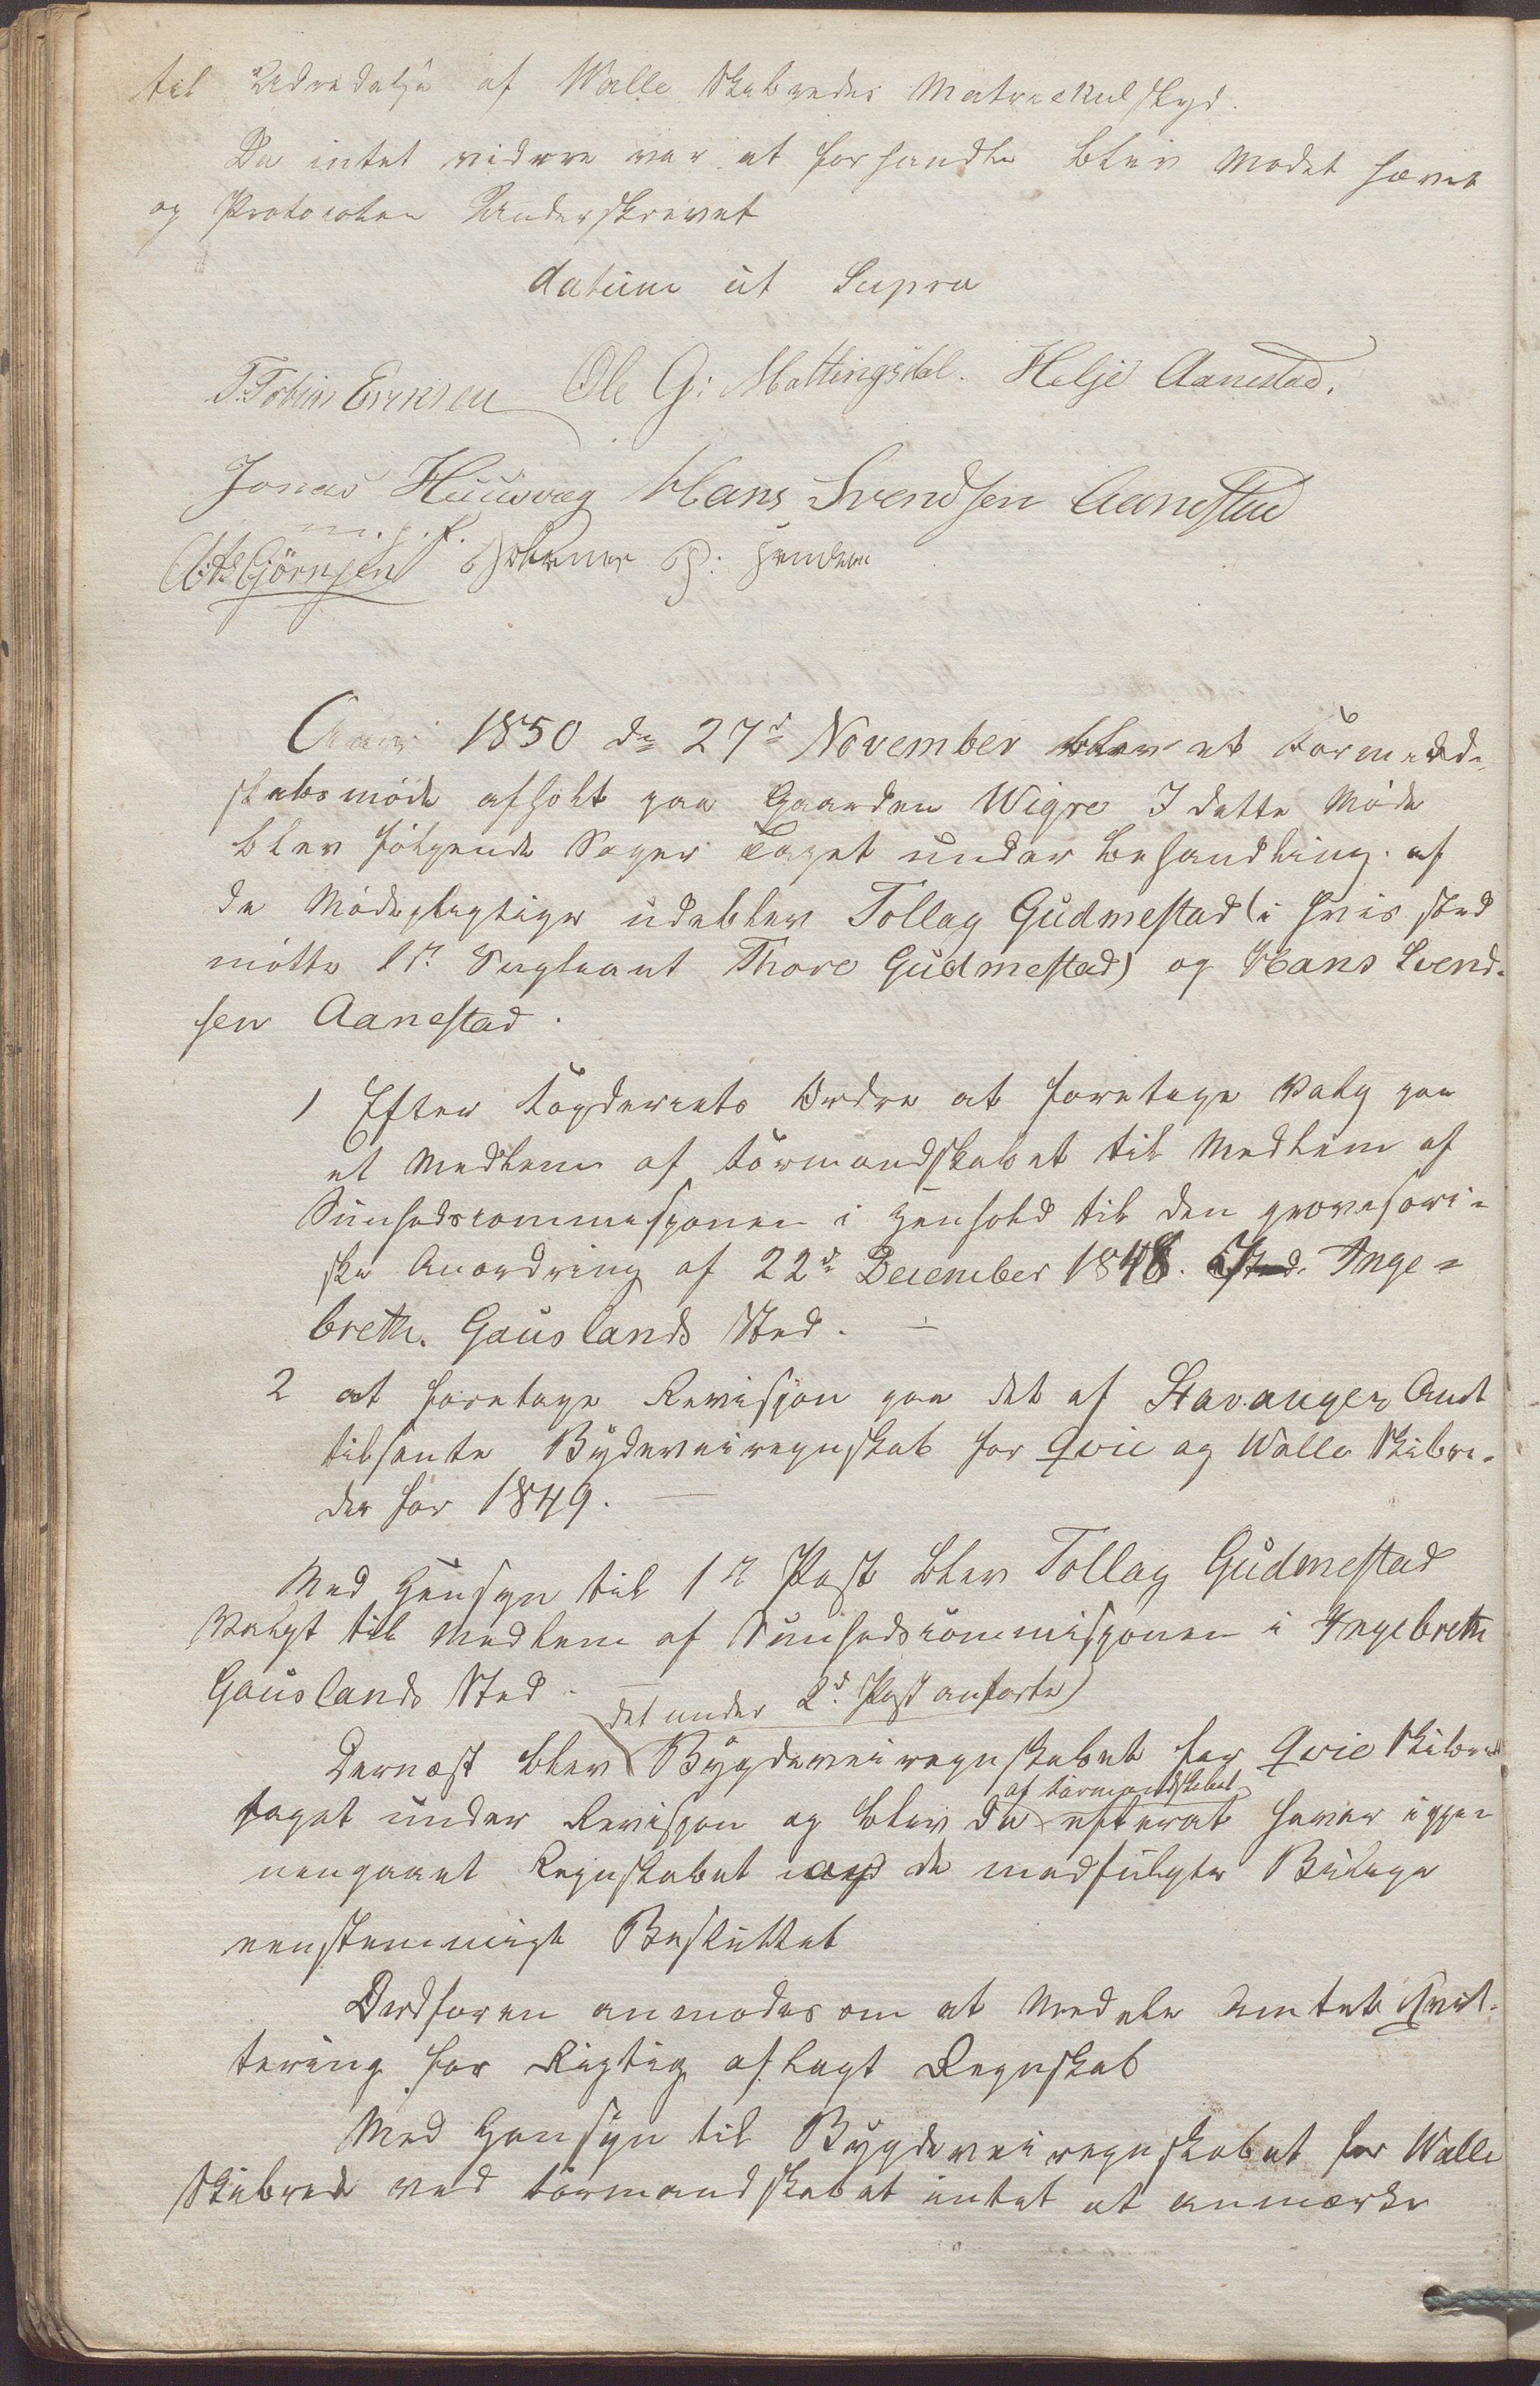 til Udredelse af Walle Skibredes Matrickulskyd.
Da intet videre var at forhandle blev Mødet hævet
og Protocolen Underskrevet
datum ut Supra
T. Tobias Eriksen Ole G: Mattingsdal. Helje Aanestad.
Jonas Huusvæg Hans Svendsen Aanestad
m. p. p.
Aar 1850 dn 27d November blev et Formand-
skabsmöde afholt paa Gaarden Wigre I dette Möde
blev fölgende Sager taget under Behandling. af
de Mödepligtige udeblev Tollag Gudmestad (i hvis sted
mötte 1r. Supleant Thore Gudmestad) og Hans Svend-
sen Aanestad.
1 Efter Fogderiets Ordre at foretage Valg paa
et Medlem af Formandskabet til Medlem af
Sunhedscommisionen i Henhold til den provisori-
ske Anordning af 22d December 1848. i Inge-
breth. Gauslands Sted. -
2 at foretage Revisjon paa det af Stavanger Amt
tilsente Bydeveiregnskab for Qvie og Walle Skibre-
der for 1849. -
Med Hensyn til 1r Post blev Tollag Gudmestad
Valgt til Medlem af Sunhedscommisjonen i Ingebreth
Gauslands Sted. -
det under 2d. Post anførte)
Dernæst blev Bygdeveiregnskabet for Qvie Skibred
af Formandskabet
taget under Revisjon og blev da efterat haver igjen-
nengaaet Regnskabet med de medfulgte Bilage
eenstemmigt Besluttet
Ordføren anmodes om at Meddele Amtet Qvit-
tering for Rigtig aflagt Regnskab
Med Hensyn til Bygdeveiregnskabet for Walle
Skibrede ved Formandskabet intet at anmærke